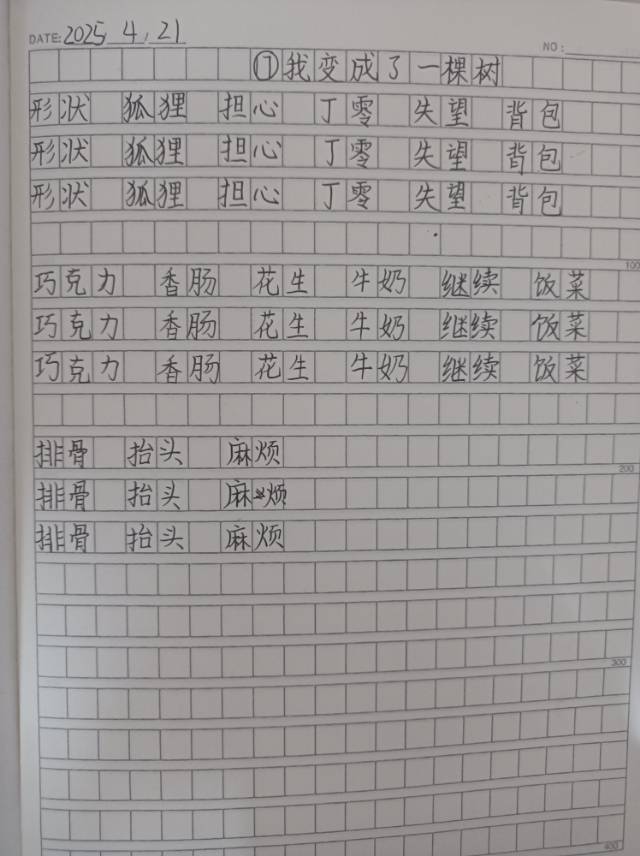 DATE: 2025 4. 21
NO:
①我变成了一棵树
形状 狐狸 担心 丁零 失望 背包
形状 狐狸 担心 丁零 失望 背包
形状 狐狸 担心 丁零 失望 背包
100
巧克力 香肠 花生 牛奶 继续 饭菜
巧克力 香肠 花生 牛奶 继续 饭菜
巧克力 香肠 花生 牛奶 继续 饭菜
排骨 抬头 麻烦
200
排骨 抬头 麻烦
排骨 抬头 麻烦
300
400